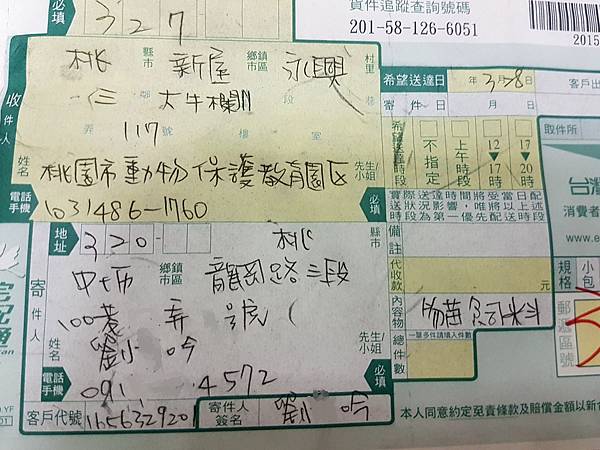 必填 327 貨件追蹤查詢號碼
201-58-126-6051
2015
收件人 桃 縣市 新屋 鄉鎮市區 永興 村里
鄰 大牛欄 段 巷
弄 117 號 樓 室
姓名 桃園市動物保護教育園区 先生/小姐
電話手機 (03)486-1760 必填
希望送達日 年 3 月 8 日 客戶出
寄件 年 月 日
希望送達時段 不指定 上午時段 12▼17時 17▼20時 取件所
實際送達時間將受當日配
送狀況影響,唯將以上述
時段為第一優先配送時段
台灣
消費者
備註
代收款 元
規格 小包
內容物 飼料
郵遞區號
總件數 一單多件請填入件數
寄件人 地址 320- 桃 縣市
中壢 鄉鎮市區 龍岡路三段
100巷 弄 號
姓名 劉小吟 先生/小姐
電話手機 091 4572 必填
客戶代號 1656329201 寄件人簽名 劉小吟
宅配通
本人同意約定免責條款及賠償金額以新台